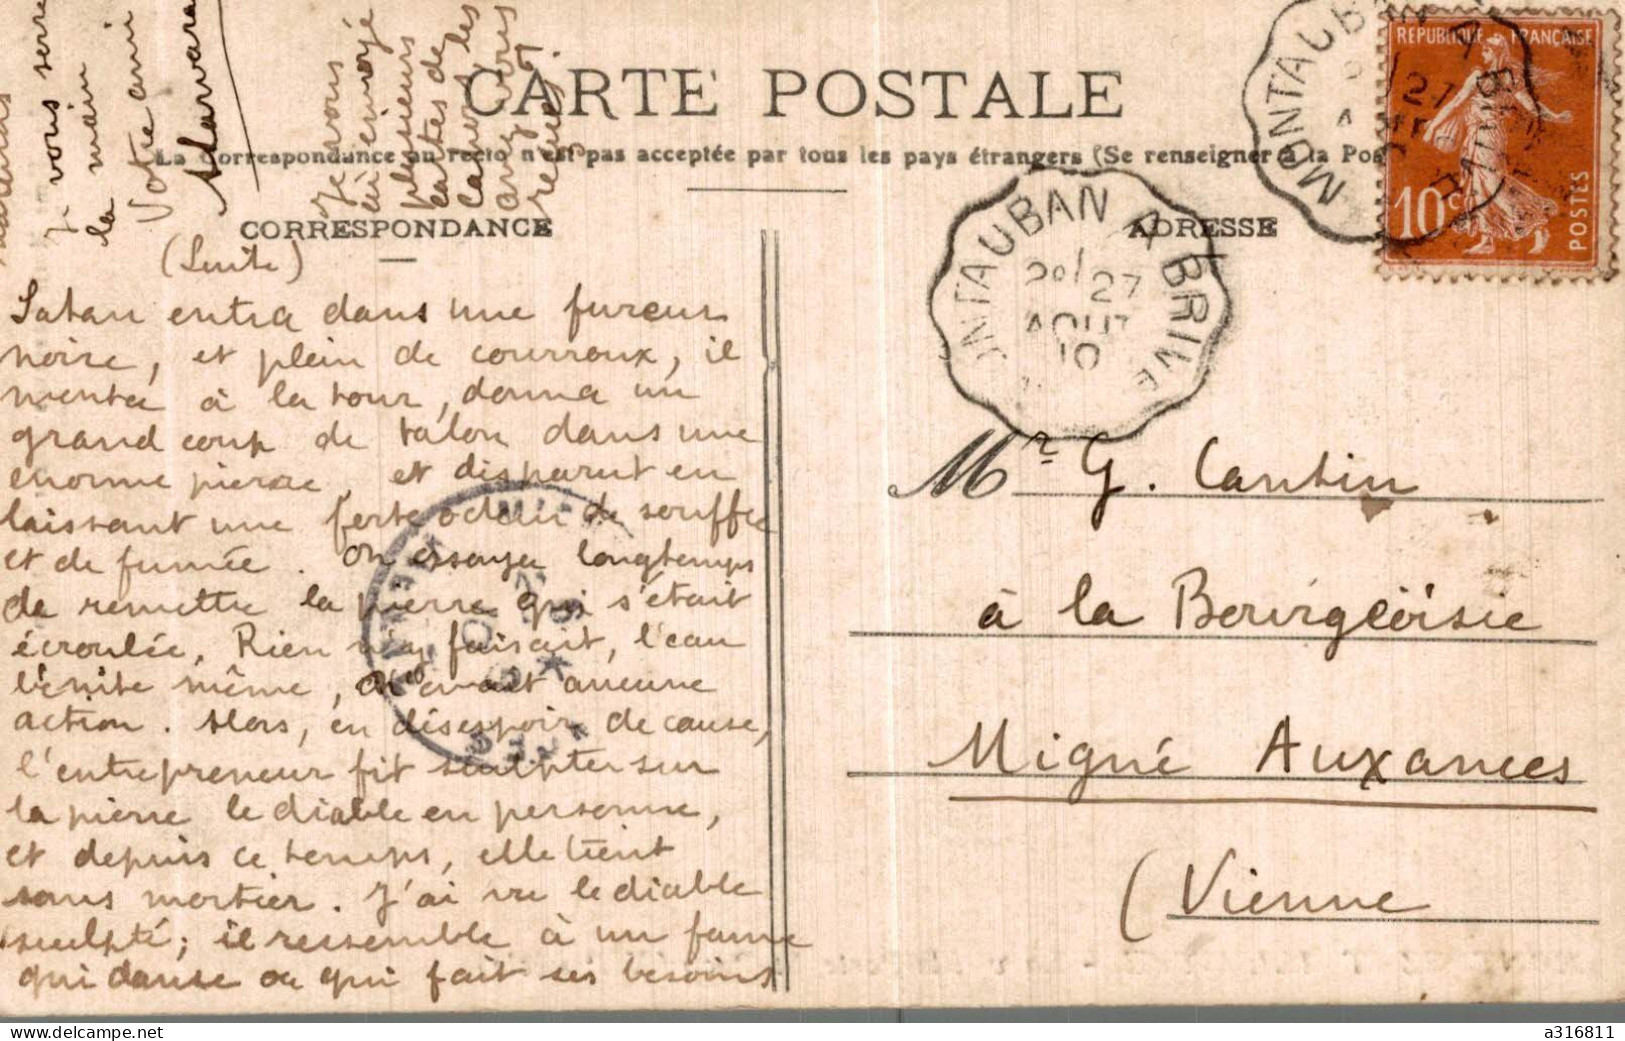 CARTE POSTALE
La Correspondance au recto n'est pas acceptée par tous les pays étrangers (Se renseigner à la Pos
CORRESPONDANCE
ADRESSE
REPUBLIQUE FRANÇAISE
10c
POSTES
MONTAUBAN A BRIVE
27
MONTAUBAN A BRIVE
27
AOUT
10
Je vous serre
la main
Votre ami
Je vous
ai envoyé
plusieurs
cartes de
les
avez vous
reçues?
(Suite)
Satan entra dans une fureur
noire, et plein de courroux, il
monta à la tour, donna un
grand coup de talon dans une
énorme pierre, et disparut en
laissant une forte odeur de souffre
et de fumée. On essaya longtemps
de remettre la pierre qui s'était
écroulée, Rien n'y faisait, l'eau
bénite même, n'avait aucune
action. Alors, en désespoir de cause,
l'entrepreneur fit sculpter sur
la pierre le diable en personne,
et depuis ce temps, elle tient
sans mortier. J'ai vu le diable
sculpté; il ressemble à un faune
qui danse ou qui fait ses besoins
Mr G. Cantin
à la Bourgeoisie
Migné Auxances
(Vienne
a316811